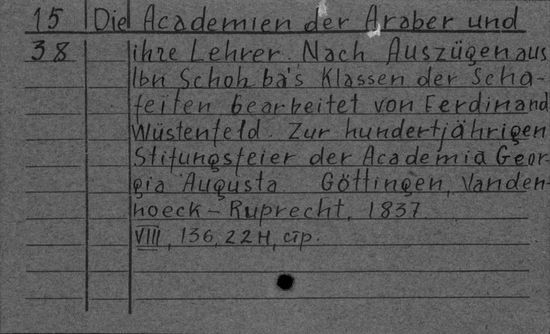 15 Die Academien der Araber und
38 ihre Lehrer. Nach Auszügen aus
Ibn Schoh ba's Klassen der Scha-
feiten bearbeitet von Ferdinand
Wüstenfeld. Zur hundertjährigen
Stiftungsfeier der Academia Geor-
gia Augusta. Göttingen, Vanden-
hoeck – Ruprecht, 1837.
VIII, 136, 22 H, стр.